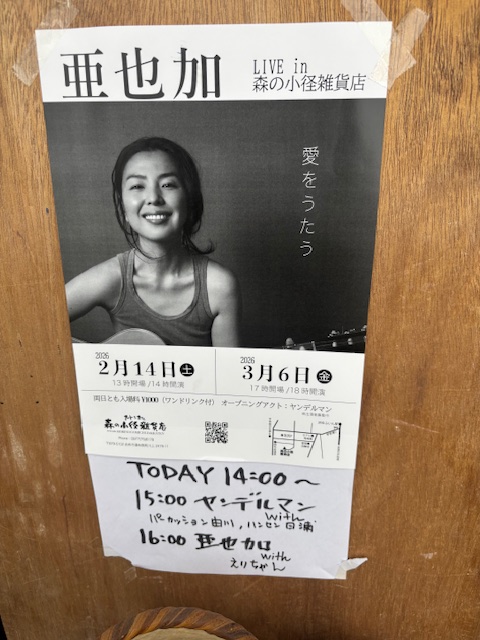 亜也加
LIVE in
森の小径雑貨店
愛をうたう
2026
2月14日土
13時開場/14時開演
2026
3月6日金
17時開場/18時開演
両日とも入場料 ¥1000（ワンドリンク付） オープニングアクト：ヤンデルマン
森の小径雑貨店
TODAY 14:00〜
15:00 ヤンデルマン
with
パーカッション由川, ハンセン日浦
16:00 亜也加
with
えりちゃん